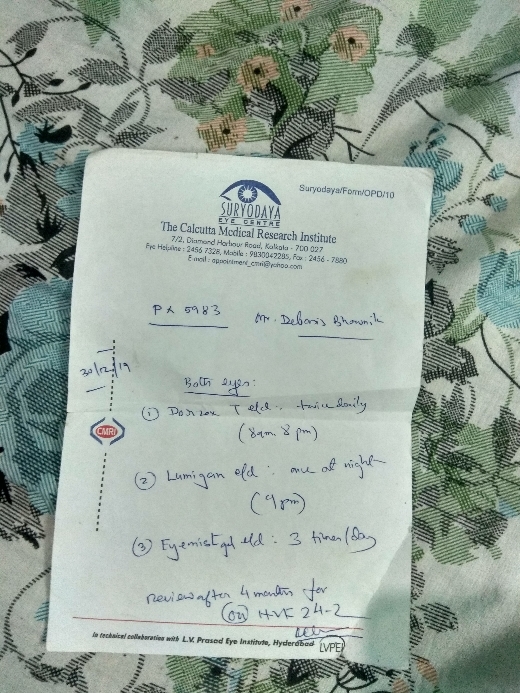 Suryodaya/Form/OPD/10
SURYODAYA
EYE CENTRE
The Calcutta Medical Research Institute
7/2, Diamond Harbour Road, Kolkata - 700 027
Eye Helpline : 2456 7328, Mobile : 9830042285, Fax : 2456 - 7880
E-mail : appointment_cmri@yahoo.com
PX 5983 Mr. Debasis Bhowmik
30/12/19
Both eyes:
(1) T e/d : twice daily
(8am 8pm)
CMRI
(2) Lumigan e/d : one at night
(9pm)
(3) Eyemist gel e/d : 3 times/day
review after 4 months for
(OU) HVF 24-2
In technical collaboration with L.V. Prasad Eye Institute, Hyderabad LVPEI